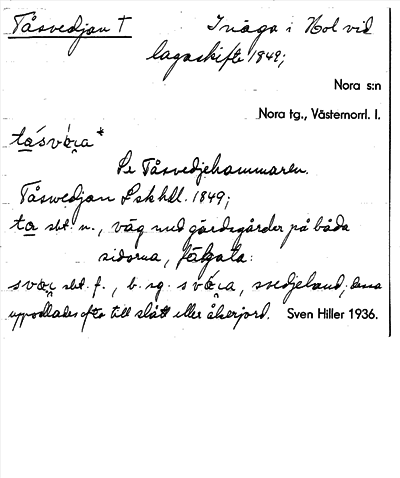 Tåsvedjan † Inäga i Hol vid
lagaskifte 1849;
Nora s:n
Nora tg., Västernorrl. l.
tásvœ́ɾa*
Se Tåsvedjehammaren.
Tåsvedjan Lskhdl. 1849;
ta sbt. n., väg med gärdsgårdar på båda
sidorna, fägata:
svœɾ sbt. f., b. sg. svœ́ɾa, svedjeland; dessa
uppodlades ofta till slått eller åkerjord. Sven Hiller 1936.